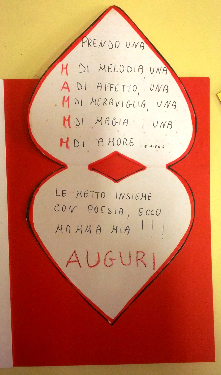 PRENDO UNA
M DI MELODIA, UNA
A DI AFFETTO, UNA
M DI MERAVIGLIA, UNA
M DI MAGIA, UNA
M DI AMORE .....
LE METTO INSIEME
CON POESIA, ECCO
MAMMA MIA !!!
AUGURI